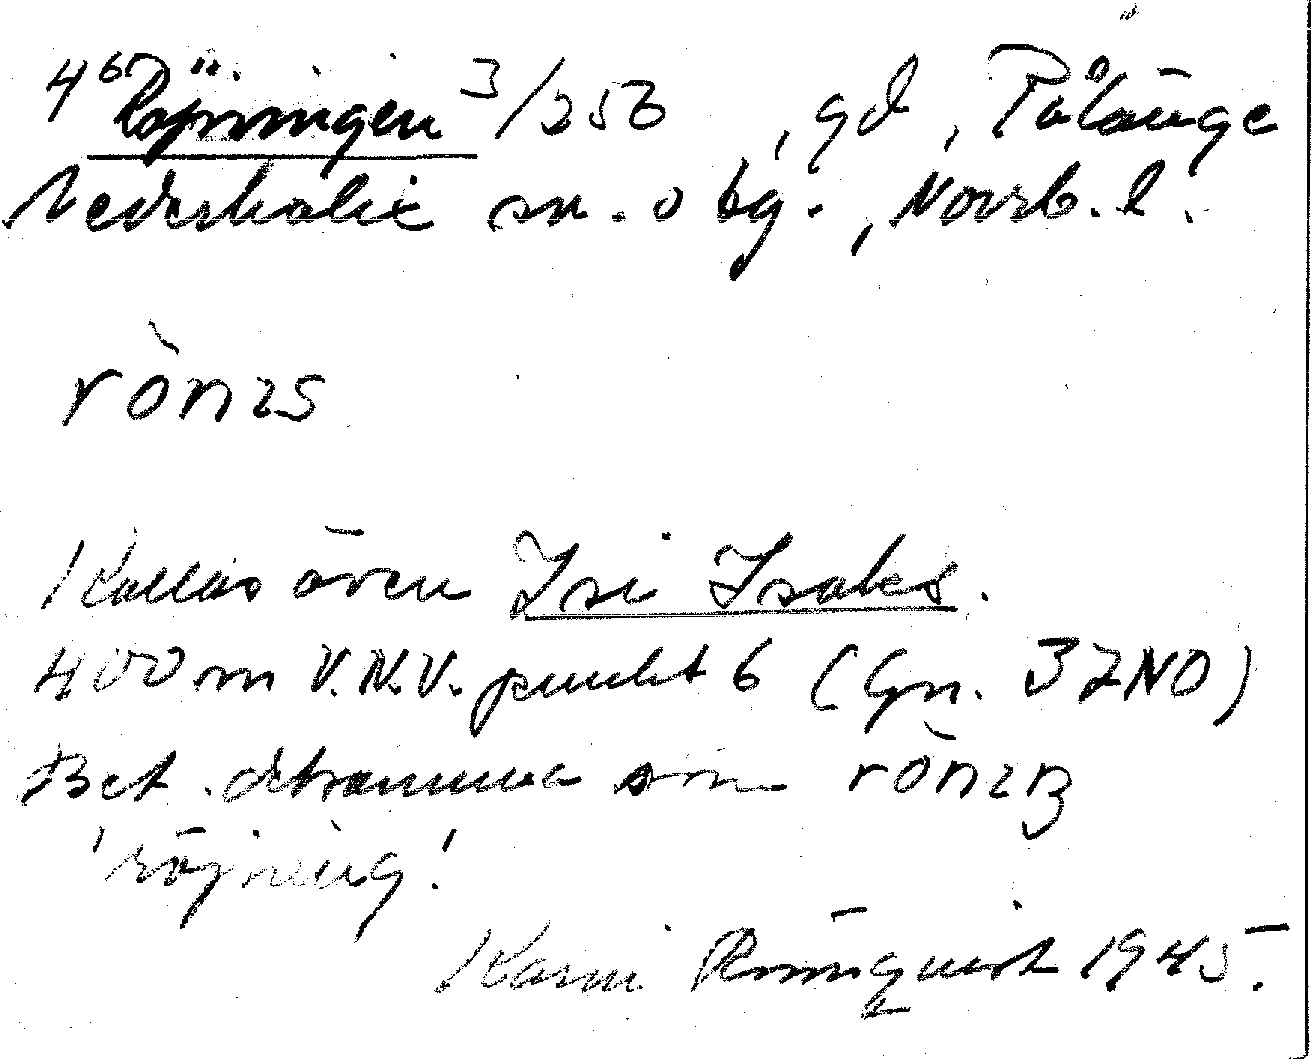 4⁶ Röjningen ³/256, gd, Pålänge
Nederkalix sn. o tg., Norrb. l.
rònıs
Kallas även Isi Isaks.
400 m V.N.V. punkt 6 (Gn. 37NO)
Bet. detsamma som rònıŋ
'röjning'.
Karin Rönnquist 1945.